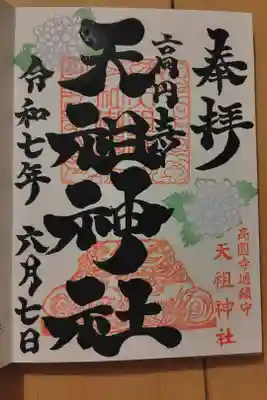 奉拝
高円寺
天祖神社
令和七年 六月七日
高圓寺通鎮守
天祖神社